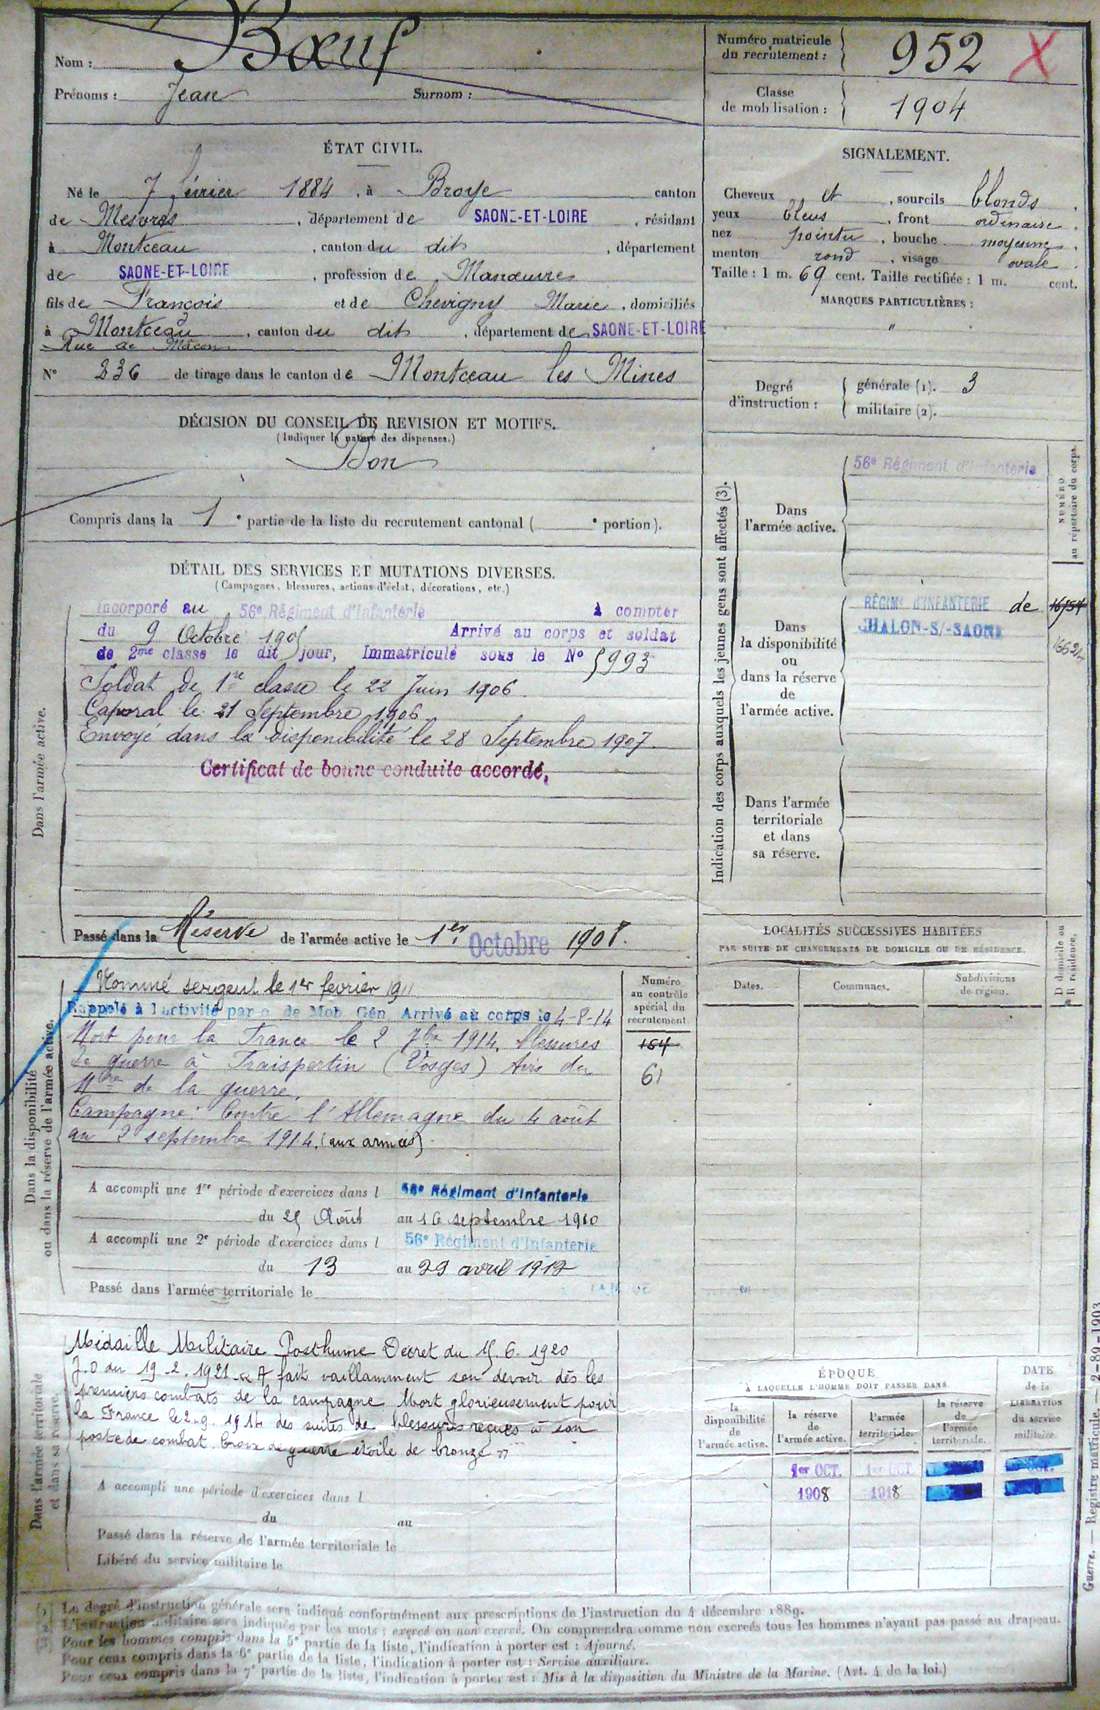 Nom : Bœuf
Prénoms : Jean Surnom :
Numéro matricule du recrutement : 952 X
Classe de mobilisation : 1904
ÉTAT CIVIL.
Né le 7 février 1884, à Broye canton
de Mesvres, département de SAONE-ET-LOIRE, résidant
à Montceau, canton du dit, département
de SAONE-ET-LOIRE, profession de Manœuvre
fils de François et de Chevigny Marie, domiciliés
à Montceau, canton du dit, département de SAONE-ET-LOIRE
Rue de Mâcon
N° 236 de tirage dans le canton de Montceau les Mines
SIGNALEMENT.
Cheveux et, sourcils blonds,
yeux bleus, front ordinaire,
nez pointu, bouche moyenne,
menton rond, visage ovale.
Taille : 1 m. 69 cent. Taille rectifiée : 1 m. cent.
MARQUES PARTICULIÈRES :
"
Degré d'instruction : générale (1). 3
militaire (2).
DÉCISION DU CONSEIL DE REVISION ET MOTIFS.
(Indiquer la nature des dispenses.)
Bon
Compris dans la 1e partie de la liste du recrutement cantonal ( e portion).
DÉTAIL DES SERVICES ET MUTATIONS DIVERSES.
(Campagnes, blessures, actions d'éclat, décorations, etc.)
Dans l'armée active.
Incorporé au 56e Régiment d'Infanterie à compter
du 9 Octobre 1905 Arrivé au corps et soldat
de 2me classe le dit jour, Immatriculé sous le N° 5993
Soldat de 1re classe le 22 Juin 1906
Caporal le 21 Septembre 1906
Envoyé dans la disponibilité le 28 Septembre 1907.
Certificat de bonne conduite accordé,
Passé dans la Réserve de l'armée active le 1er Octobre 1908.
Indication des corps auxquels les jeunes gens sont affectés (3).
NUMÉRO au répertoire du corps.
Dans l'armée active.
56e Régiment d'Infanterie
Dans la disponibilité ou dans la réserve de l'armée active.
RÉGIMt D'INFANTERIE de
CHALON-S/-SAONE
Dans l'armée territoriale et dans sa réserve.
LOCALITÉS SUCCESSIVES HABITÉES
PAR SUITE DE CHANGEMENTS DE DOMICILE OU DE RÉSIDENCE.
Dates. Communes. Subdivisions de région. D domicile ou R résidence.
Dans la disponibilité ou dans la réserve de l'armée active.
Numéro au contrôle spécial du recrutement
164
61
Nommé sergent le 1er fevrier 1911
Rappelé à l'activité par o. de Mob. Gén. Arrivé au corps le 4-8-14
Mort pour la France le 2 7bre 1914. blessures
de guerre à (Vosges) Avis du
Mtre de la guerre.
Campagne: Contre l'Allemagne du 4 août
au 2 septembre 1914. (aux armées)
A accompli une 1re période d'exercices dans l 56e Régiment d'Infanterie
du 25 Août au 16 septembre 1910
A accompli une 2e période d'exercices dans l 56e Régiment d'Infanterie
du 13 au 29 avril 1912
Passé dans l'armée territoriale le
Dans l'armée territoriale et dans sa réserve.
Médaille Militaire Posthume Décret du 15.6.1920
J.O du 19.2.1921 « A fait vaillamment son devoir dès les
premiers combats de la campagne Mort glorieusement pour
la France le 2-9-1914 des suites de blessures reçues à son
poste de combat. Croix de guerre étoile de bronze »
A accompli une période d'exercices dans l
du au
Passé dans la réserve de l'armée territoriale le
Libéré du service militaire le
ÉPOQUE
À LAQUELLE L'HOMME DOIT PASSER DANS
DATE de la LIBÉRATION du service militaire.
la disponibilité de l'armée active.
la réserve de l'armée active.
l'armée territoriale.
la réserve de l'armée territoriale.
1er OCT. 1er OCT.
1908 1918
Le degré d'instruction générale sera indiqué conformément aux prescriptions de l'instruction du 4 décembre 1889.
L'instruction militaire sera indiquée par les mots : exercé ou non exercé. On comprendra comme non exercés tous les hommes n'ayant pas passé au drapeau.
Pour les hommes compris dans la 5e partie de la liste, l'indication à porter est : Ajourné.
Pour ceux compris dans la 6e partie de la liste, l'indication à porter est : Service auxiliaire.
Pour ceux compris dans la 7e partie de la liste, l'indication à porter est : Mis à la disposition du Ministre de la Marine. (Art. 4 de la loi.)
Guerre. — Registre matricule. — 2-89-1903